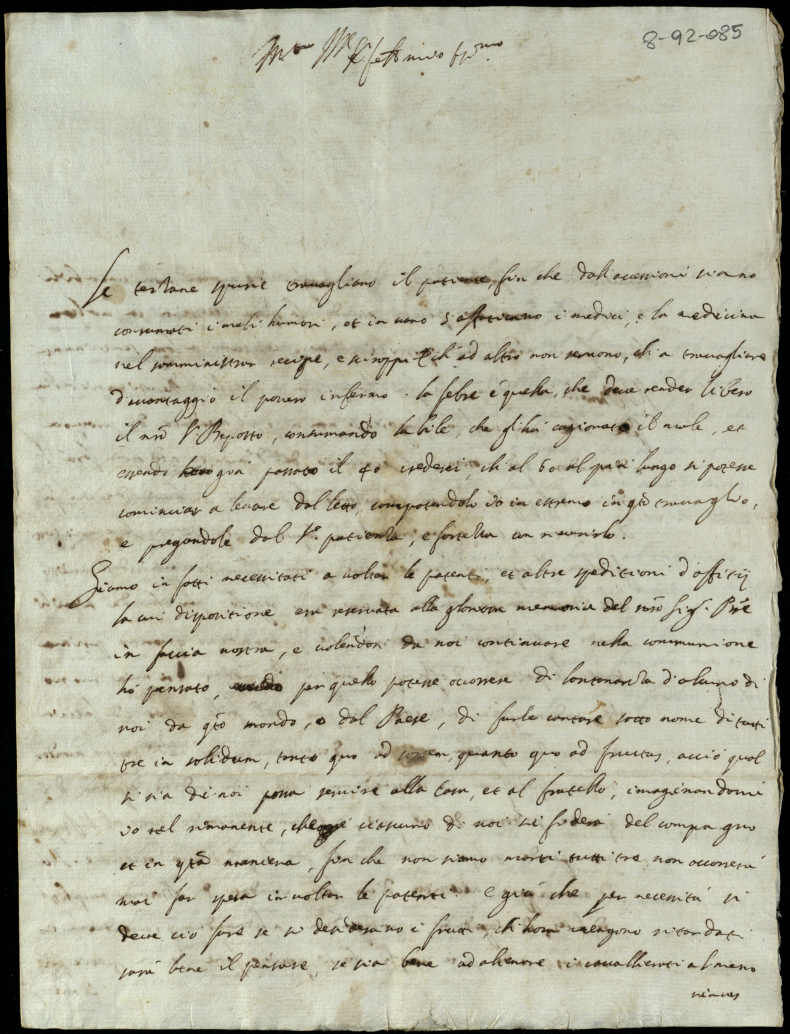 8-92-085
Se tertane spurie travagliano il patiente, sin che dall'accessioni siano
consumati i mali humori, et in vano s'affaticano i medici, e la medicina
nel somministrar recipe, e siroppi ch'ad altro non servono, ch'a travagliare
d'avantaggio il povero infermo. la febre è quella, che deve render libero
il nrõ Sr Preposto, consumando la bile, che gl'ha cagionato il male, et
essendo già passato il 40 crederei, ch'al 60 al più lungo si potesse
cominciar a levare dal letto, compatendolo io in estremo in qto travaglio,
e pregandole dal Sr. patienza, e fortezza con
Siamo in fatti necessitati a voltar le patenti, et altre speditioni d'officij
la cui dispositione era reservata alla gloriosa memoria del nrõ Sigr. Pre
in faccia nostra, e volendosi da noi continuare nella communione
hò pensato, per quello potesse occorrere di lontananza d'alcuno di
noi da qto mondo, o dal Paese, di farle cantare sotto nome di tutti
tre in solidum, tanto quo ad, quanto quo ad fructus, acciò qual
si sia di noi possa servire alla Casa, et al fratello, imaginandomi
io nel rimanente, che ciascuno di noi si fiderà del compagno
et in qta maniera, sin che non siamo morti tutti tre non occorrerà
mai far spesa in voltar le patenti. e già che per necessità si
deve ciò fare se si desiderano i frutti, ch'hora vengono ritardati
sarà bene il pensare, se sia bene ad alienare i cavallierati almeno